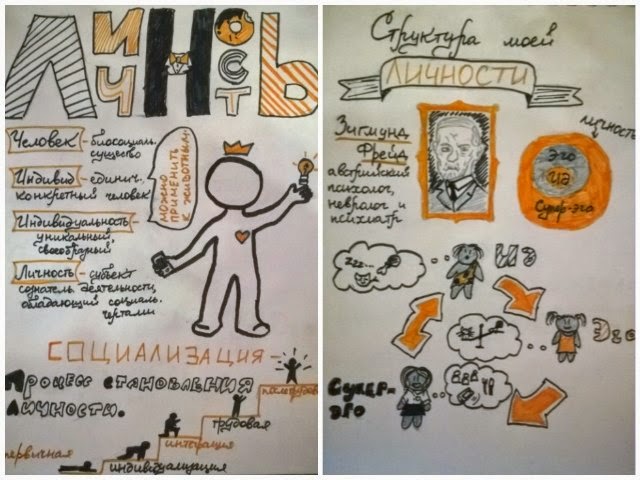 ЛИЧНОСТЬ
Человек - биосоциаль.
существо
Индивид - единич.
конкретный человек
Индивидуальность
уникальный,
своеобразный
Личность - субъект
сознатель. деятельности,
обладающий социаль.
чертами
МОЖНО
ПРИМЕНИТЬ
К ЖИВОТНЫМ
СОЦИАЛИЗАЦИЯ -
ПРОЦЕСС СТАНОВЛЕНИЯ
ЛИЧНОСТИ.
первичная
индивидуализация
интеграция
трудовая
Структура моей
ЛИЧНОСТИ
Зигмунд
Фрейд
австрийский
психолог,
невролог и
психиатр
личность
ЭГО
ИД
Супер-эго
zzz...
ИД
Эго
СУПЕР-
ЭГО